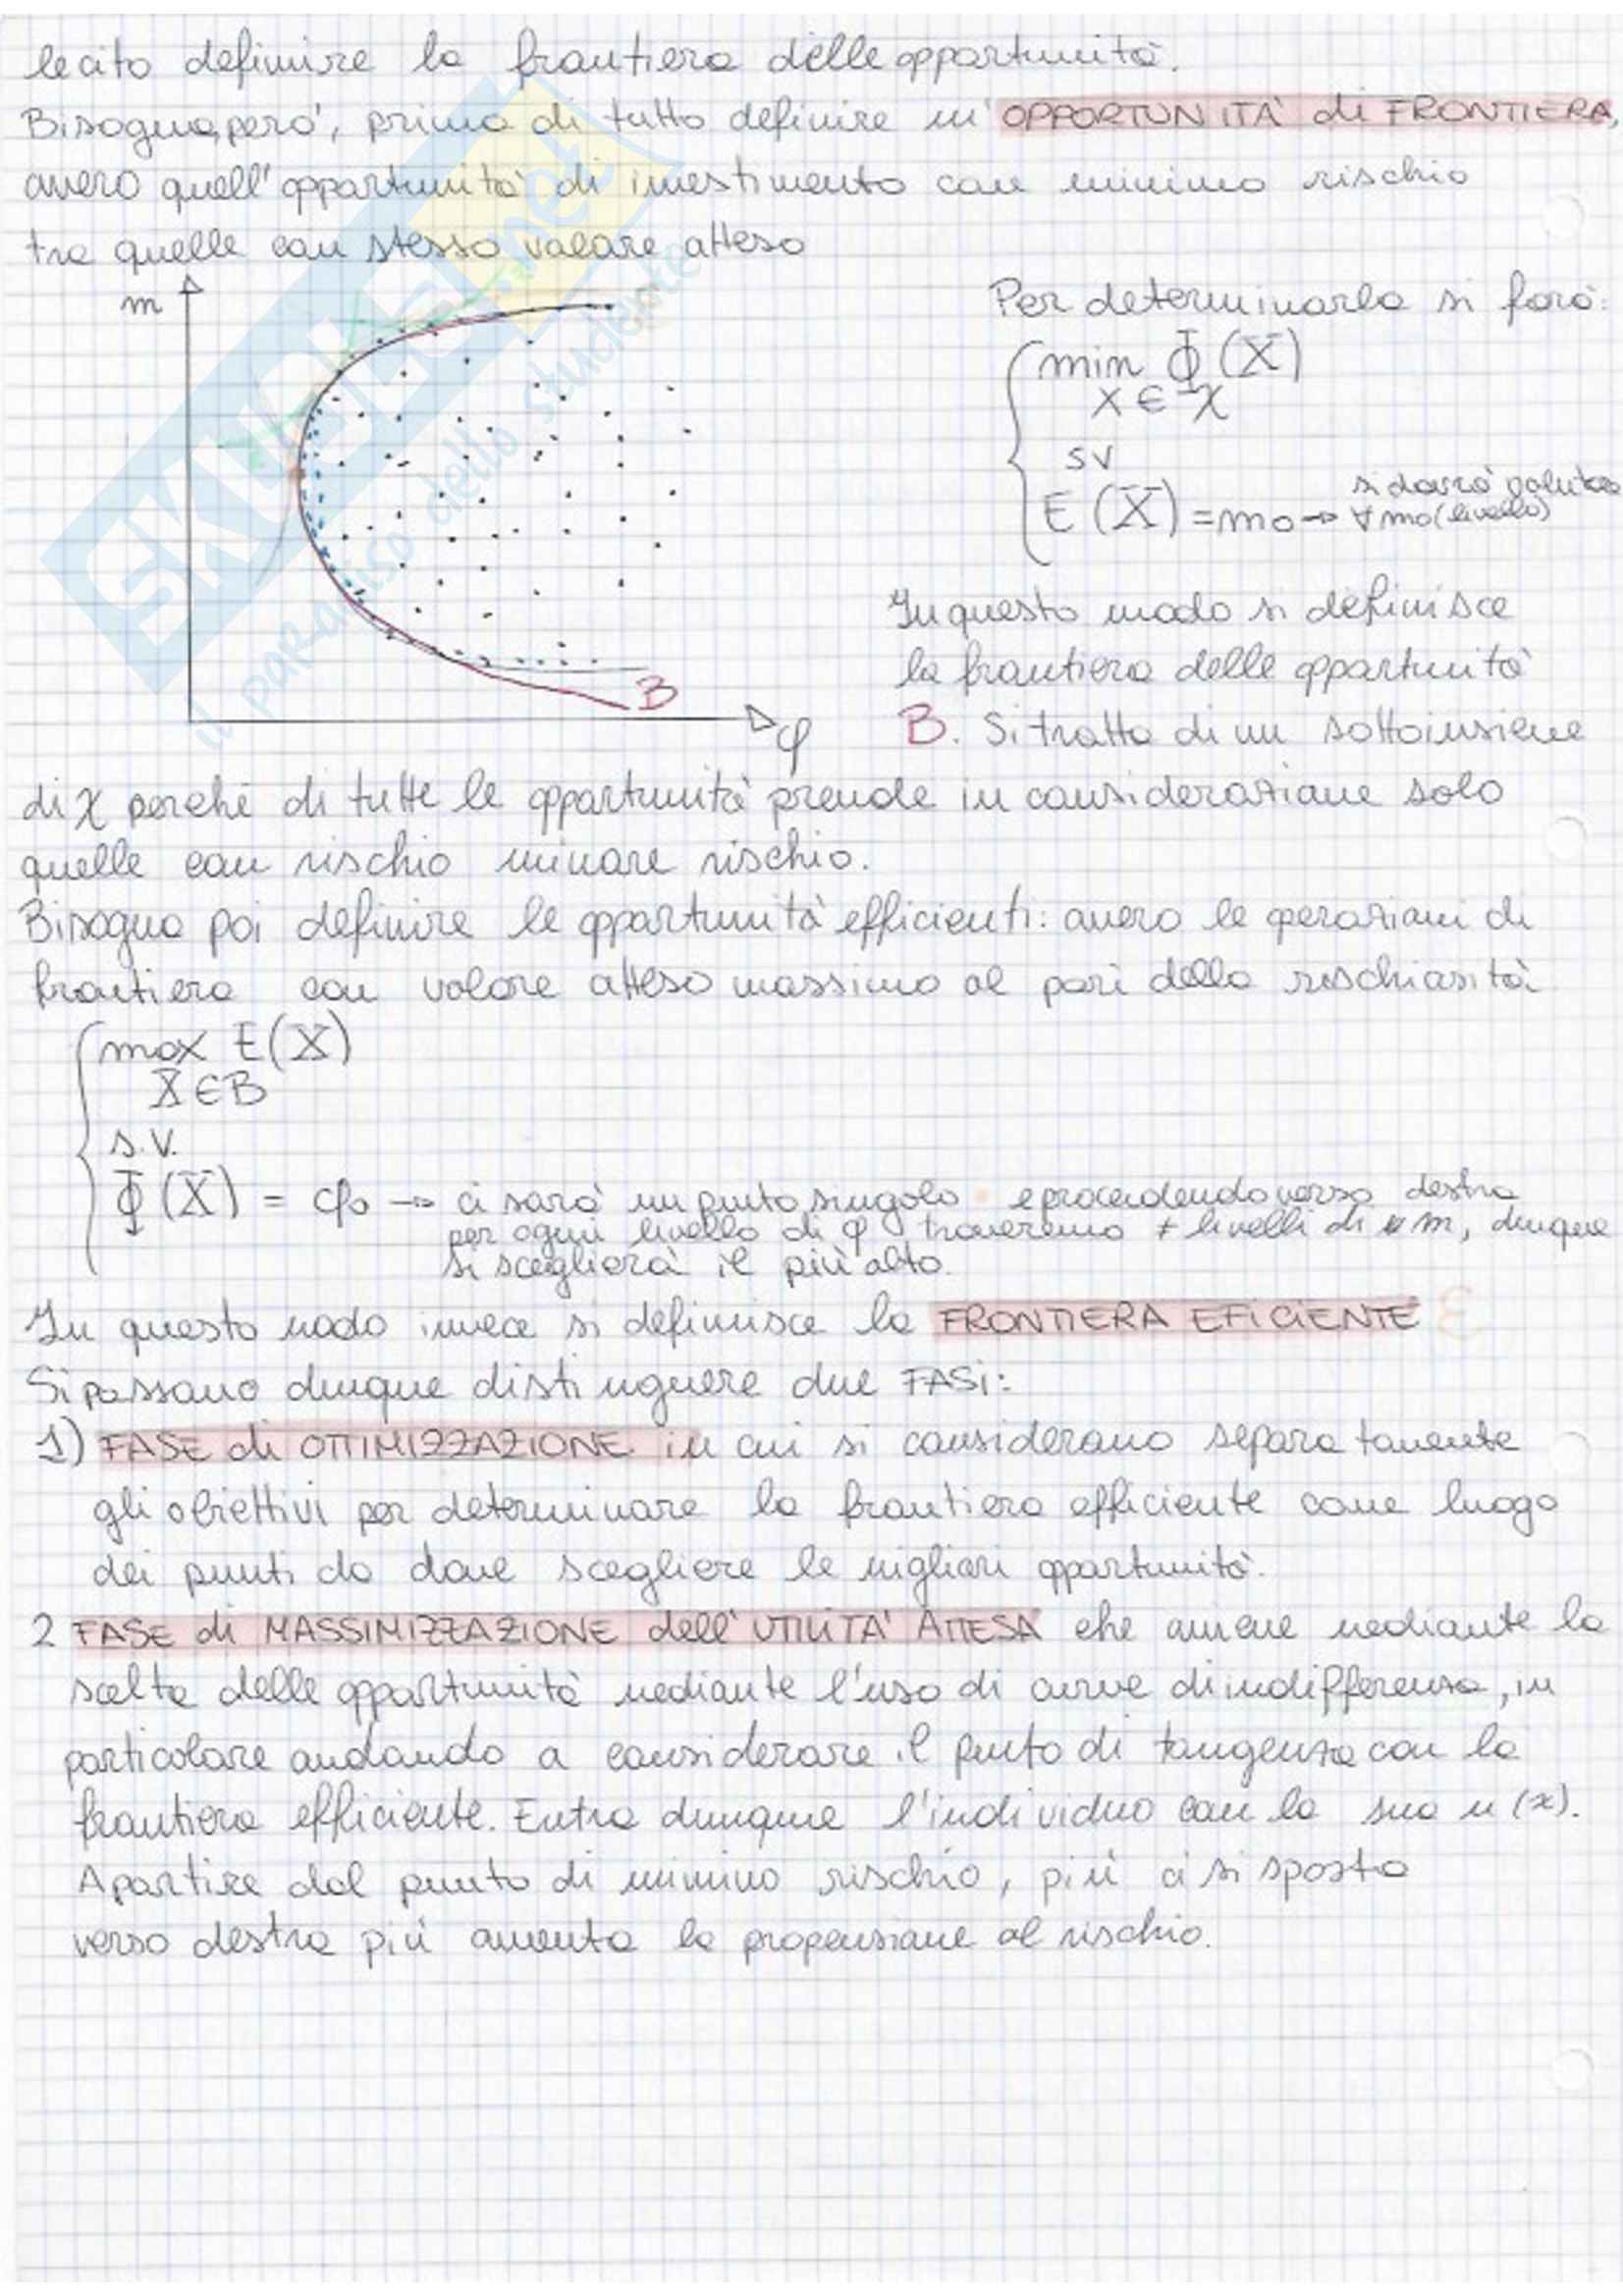 lecito definire la frontiera delle opportunità.
Bisogna, però, prima di tutto definire un' OPPORTUNITÀ di FRONTIERA,
ovvero quell'opportunità di investimento con minimo rischio
tra quelle con stesso valore atteso
m
Per determinarla si farà:
min Φ(X)
X ∈ χ
sv
E(X) = m₀ → si dovrà valutare
∀ m₀ (livello)
In questo modo si definisce
la frontiera delle opportunità
B
φ
B. Si tratta di un sottoinsieme
di χ perché di tutte le opportunità prende in considerazione solo
quelle con rischio minore rischio.
Bisogna poi definire le opportunità efficienti: ovvero le operazioni di
frontiera con valore atteso massimo al pari della rischiosità
max E(X)
X ∈ B
s.v.
Φ(X) = φ₀ → ci sarà un punto singolo e procedendo verso destra
per ogni livello di φ troveremo ≠ livelli di m, dunque
si sceglierà il più alto.
In questo modo invece si definisce la FRONTIERA EFICIENTE
Si possono dunque distinguere due FASI:
1) FASE di OTTIMIZZAZIONE in cui si considerano separatamente
gli obiettivi per determinare la frontiera efficiente come luogo
dei punti da dove scegliere le migliori opportunità.
2 FASE di MASSIMIZZAZIONE dell'UTILITA' ATTESA che avviene mediante la
scelta delle opportunità mediante l'uso di curve di indifferenza, in
particolare andando a considerare il punto di tangenza con la
frontiera efficiente. Entra dunque l'individuo con la sua u(x).
A partire dal punto di minimo rischio, più ci si sposta
verso destra più aumenta la propensione al rischio.
SKUOLA.net
il paradiso dello studente